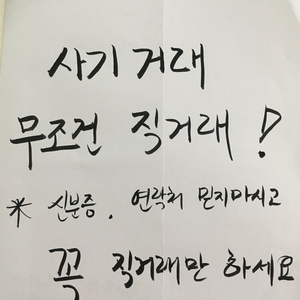 사기 거래
무조건 직거래 !
* 신분증. 연락처 믿지마시고
꼭 직거래만 하세요